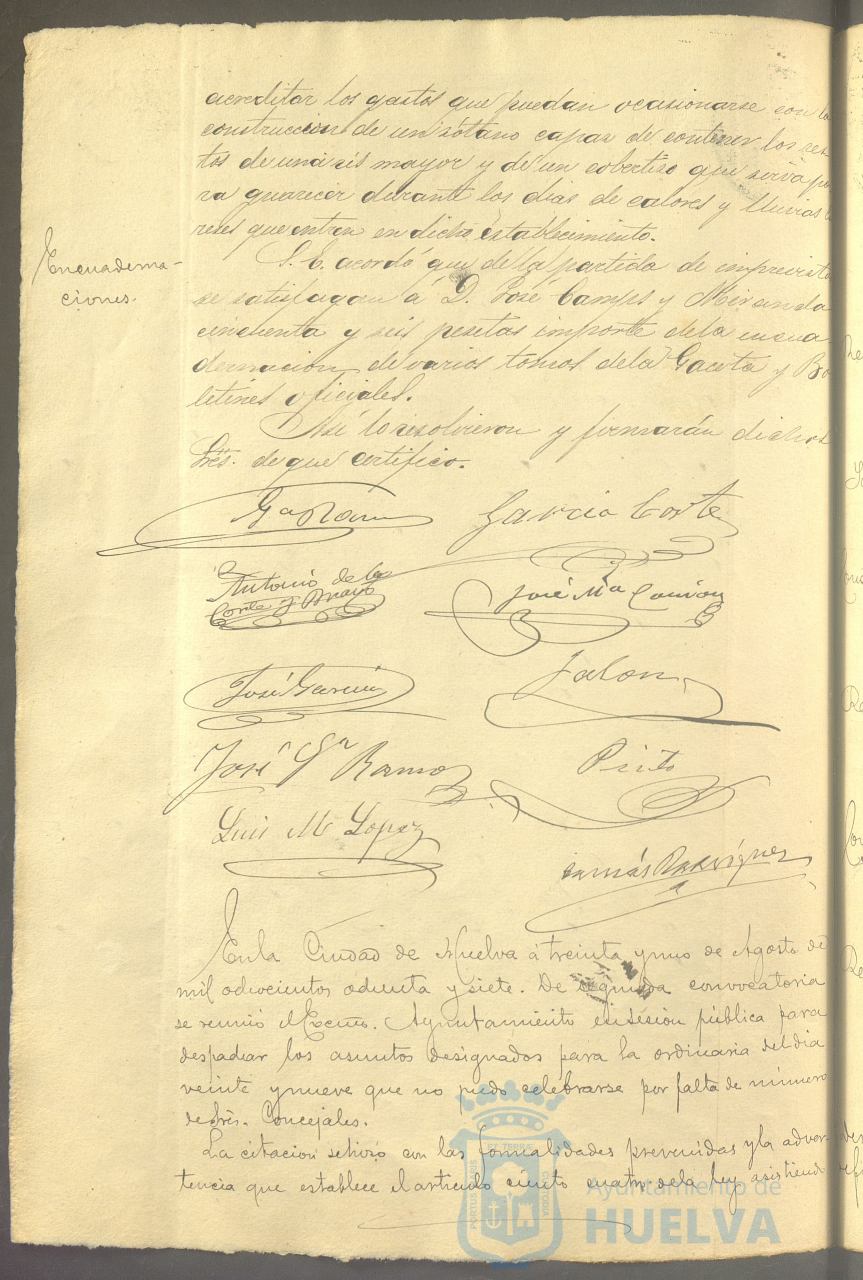 acreditar los gastos que puedan ocasionarse con la
construccion de un sótano capaz de contener los res-
tos de una res mayor y de un cobertizo que sirva pa
ra guarecer durante los dias de calores y lluvias
reses que entran en dicho establecimiento.
Encuaderna-
ciones.
S. E. acordó que de la partida de imprevistos
se satisfagan á D. José Camps y Miranda
cincuenta y seis pesetas importe de la encua
dernacion de varios tomos de la Gaceta y Bo
letines oficiales.
Asi lo resolvieron y firmarán dichos
Sres. de que certifico.
García Corte
Antonio de la
Corte y Bravo
José Mª
José García
Jalon
José Gª Ramos
Prieto
Luis M Lopez
Tomás Rodriguez
En la Ciudad de Huelva á treinta y uno de Agosto de
mil ochocientos ochenta y siete. De segunda convocatoria
se reunió el Excmo. Ayuntamiento en sesión pública para
despachar los asuntos designados para la ordinaria del dia
veinte y nueve que no pudo celebrarse por falta de número
de Sres. Concejales.
La citacion se hizo con las formalidades prevenidas y la adver-
tencia que establece el artículo ciento cuatro de la ley asistiendo
Ayuntamiento de
HUELVA